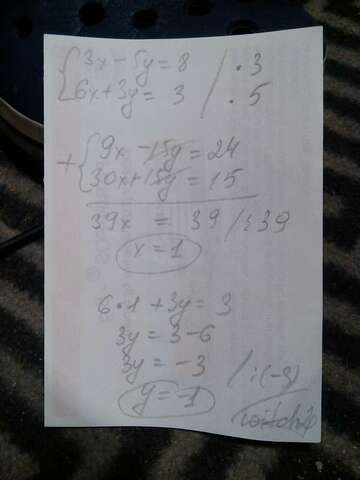 3x - 5y = 8 / · 3
6x + 3y = 3 / · 5
+ 9x - 15y = 24
30x + 15y = 15
39x = 39 / : 39
x = 1
6 · 1 + 3y = 3
3y = 3 - 6
3y = -3 / : (-3)
y = -1